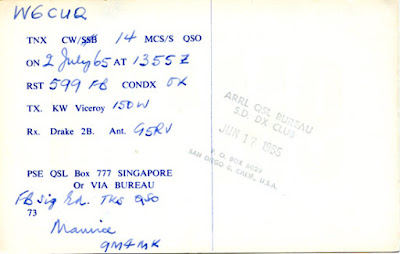 W6CUQ
TNX CW/SSB 14 MCS/S QSO
ON 2 July 65 AT 1355 Z
RST 599 FB CONDX OK
TX. KW Viceroy 150W
Rx. Drake 2B. Ant. G5RV
PSE QSL Box 777 SINGAPORE
Or VIA BUREAU
FB sig Ed. TKS QSO
73
Maurice
9M4MK
ARRL QSL BUREAU
S.D. DX CLUB
JUN 17 1966
P. O. BOX 6029
SAN DIEGO 6, CALIF., U.S.A.